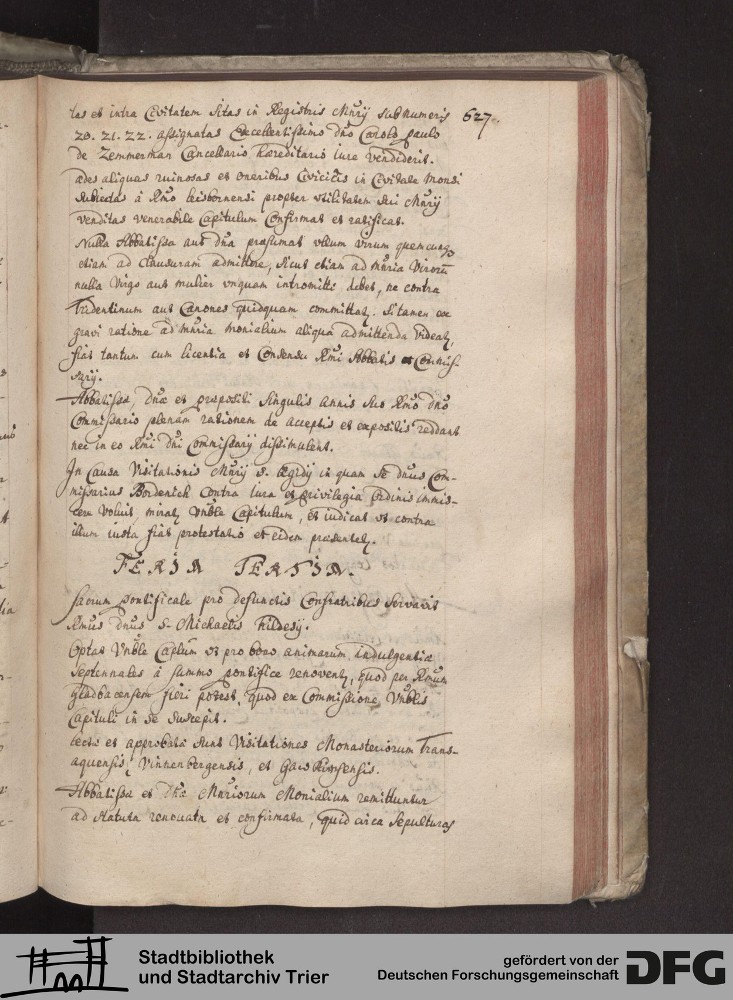 tas et intra Civitatem sitas in Registris Mnrÿ sub numeris 627.
20. 21. 22. assignatas Excellentissimo dno Carolo paulo
de Zemmerman Cancellario haereditario iure vendiderit.
aedes aliquas ruinosas et oneribus Civicis in Civitate
subiectas à Rmo leisbornensi propter utilitatem sui Mnrÿ
venditas venerabile Capitulum Confirmat et ratificat.
Nulla Abbatissa aut dna praesumat ullum virum quemcunq
etiam ad Clausuram admittere, sicut etiam ad mnria Virorũ
nulla Virgo aut mulier unquam intromitti debet, ne contra
Tridentinum aut Canones quidquam committat. Si tamen ex
gravi ratione ad mnria monialium aliqua admittenda videat,
fiat tantum cum licentia et Consensu Rmi Abbatis et Commis-
sarÿ.
Abbatissa, dnae et praepositi singulis annis suo Rmo dno
Commissario plenam rationem de acceptis et expositis reddant
nec in eo Rmi dni Commissarÿ dissimulent.
In Causa Visitationis Mnrÿ S. Ægidÿ in quam se dnus Com-
missarius Borderich Contra iura et privilegia ordinis immis-
cere voluit, mirat Vnble Capitulum, et iudicat ut contra
illum iusta fiat protestatio et eidem praesentet.
FERIA TERTIA.
Sacrum pontificale pro defunctis Confratribus servavit
Rmus dnus S. Michaelis Hildesÿ.
Optat Vnble Caplum ut pro bono animarum indulgentiae
septennales à summo pontifice renovent, quod per Rmum
gladbacensem fieri potest, quod ex Commissione Vnblis
Capituli in se suscepit.
lectae et approbatae sunt Visitationes Monasteriorum Trans-
aquensis, Vinnenbergensis, et
Abbatissa et dnae Mnriorum Monialium remittuntur
ad statuta renovata et confirmata, quid circa sepulturas
Stadtbibliothek
und Stadtarchiv Trier
gefördert von der
Deutschen Forschungsgemeinschaft
DFG